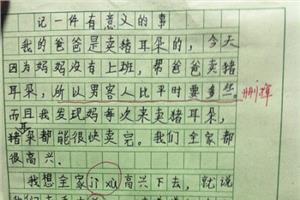 记一件有意义的事
我的爸爸是卖猪耳朵的，今天
因为妈妈没有上班，帮爸爸卖猪
耳朵，所以男客人比平时要多些。删掉
而且我发现妈每次来卖猪耳朵，
猪耳朵都能很快卖完。我们全家都
很高兴。
我想全家ji xu高兴下去，就说